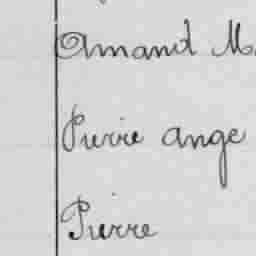 Amand M
Pierre ange
Pierre